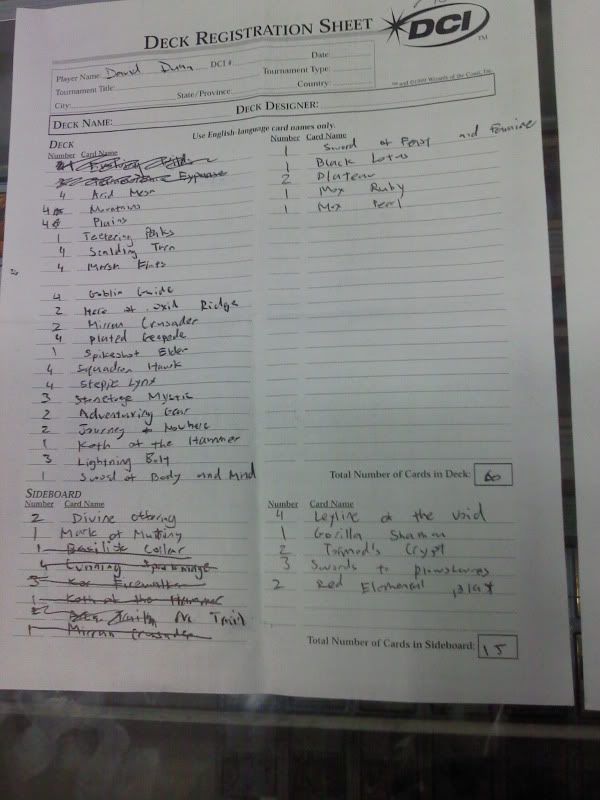 DECK REGISTRATION SHEET
DCI
TM
Player Name: David Dunn DCI #:
Date:
Tournament Title:
Tournament Type:
City: State/Province: Country:
™ and ©1999 Wizards of the Coast, Inc.
DECK NAME: DECK DESIGNER:
Use English-language card names only.
DECK
Number Card Name
Expanse
4 Arid Mesa
4 Mountains
4 Plains
1 Teetering Peaks
4 Scalding Tarn
4 Marsh Flats
4 Goblin Guide
2 Hero of Oxid Ridge
2 Mirran Crusader
4 Plated Geopede
1 Spikeshot Elder
4 Squadron Hawk
4 Steppe Lynx
3 Stoneforge Mystic
2 Adventuring Gear
2 Journey to Nowhere
1 Koth of the Hammer
3 Lightning Bolt
1 Sword of Body and Mind
Number Card Name
1 Sword of Feast and Famine
1 Black Lotus
2 Plateau
1 Mox Ruby
1 Mox Perl
Total Number of Cards in Deck: 60
SIDEBOARD
Number Card Name
2 Divine Offering
1 Mark of Mutiny
1 Basilisk Collar
4 Cunning Sparkmage
3 Kor Firewalker
1 Koth of the Hammer
1 Mirran Crusader
Number Card Name
4 Leyline of the Void
1 Gorilla Shaman
2 Tormod's Crypt
3 Swords to Plowshares
2 Red Elemental Blast
Total Number of Cards in Sideboard: 15